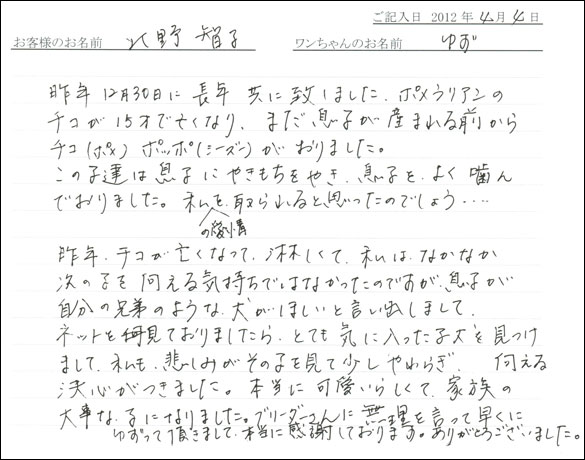 ご記入日 2012年 4月 4日
お客様のお名前 北野 智子 ワンちゃんのお名前 ゆず
昨年12月30日に長年共に致しました、ポメラリアンの
チコが15才で亡くなり、まだ息子が産まれる前から
チコ(ポメ) ポッポ(シーズー)がおりました。
この子達は息子にやきもちをやき、息子をよく噛ん
でおりました。私の愛情を取られると思ったのでしょう‥‥
昨年、チコが亡くなって、淋しくて、私は、なかなか
次の子を伺える気持ちではなかったのですが、息子が
自分の兄弟のような犬がほしいと言い出しまして、
ネットを拝見ておりましたら、とても気に入った子犬を見つけ
まして、私も、悲しみがその子を見て少しやわらぎ、伺える
決心がつきました。本当に可愛いらしくて、家族の
大事な子になりました。ブリーダーさんに無理を言って早くに
ゆずって頂きまして、本当に感謝しております。ありがとうございました。